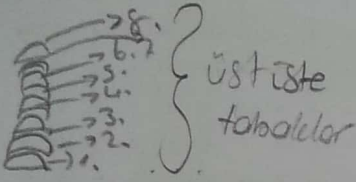 8.
6.7
5.
4.
3.
2.
1.
üst üste
tabaklar